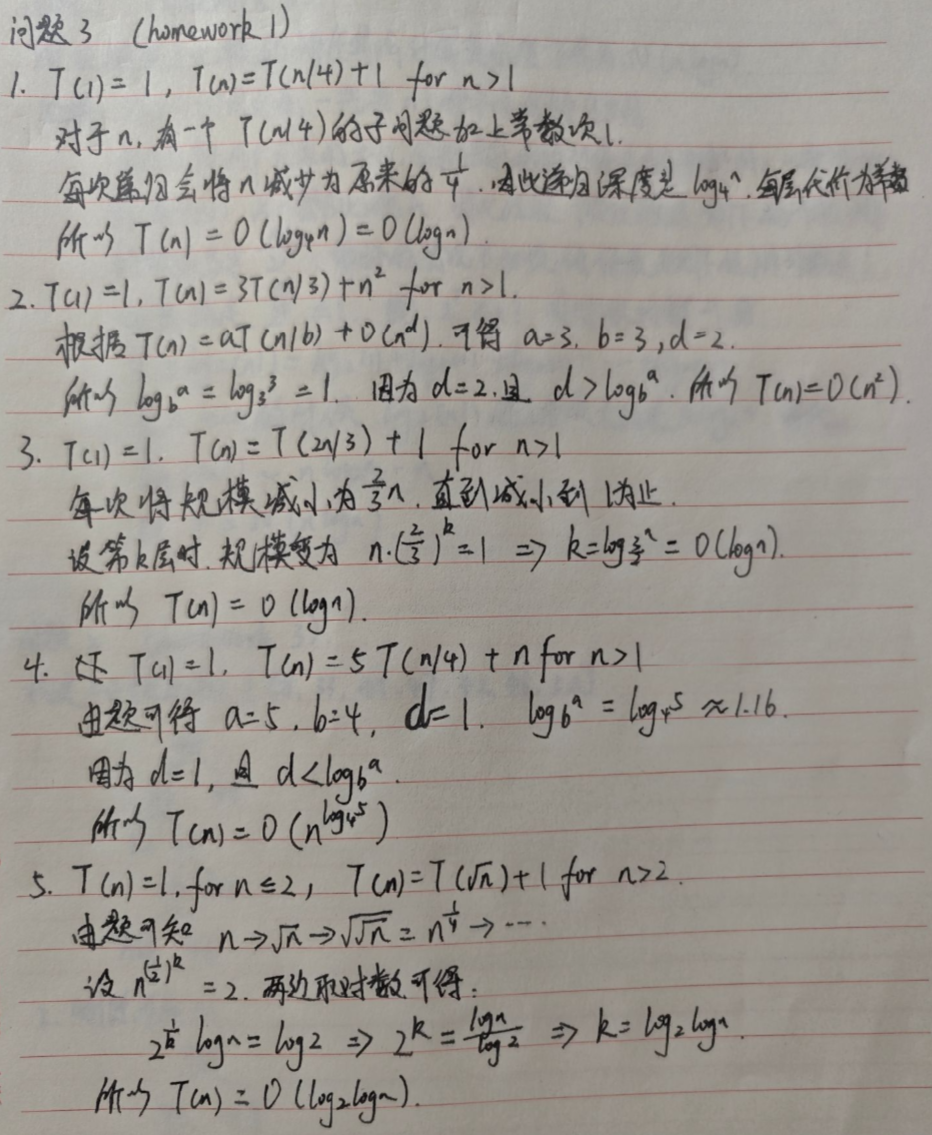 问题3 (homework 1)
1. T(1)=1, T(n)=T(n/4)+1 for n>1
对于n,有一个 T(n/4)的子问题加上常数次1.
每次递归会将n减少为原来的1/4.因此递归深度是 log₄ⁿ.每层代价为常数
所以 T(n)=O(log₄n)=O(logn).
2. T(1)=1, T(n)=3T(n/3)+n² for n>1.
根据 T(n)=aT(n/b)+O(n^d).可得 a=3. b=3, d=2.
所以 log_b^a = log₃³ =1. 因为 d=2.且 d>log_b^a. 所以 T(n)=O(n²).
3. T(1)=1. T(n)=T(2n/3)+1 for n>1
每次将规模减小为2/3n.直到减小到1为止.
设第k层时.规模变为 n·(2/3)^k=1 ⇒ k=log_{3/2}^n = O(logn).
所以 T(n)=O(logn).
4. T(1)=1. T(n)=5T(n/4)+n for n>1
由题可得 a=5. b=4, d=1. log_b^a = log₄⁵ ≈1.16.
因为 d=1,且 d<log_b^a.
所以 T(n)=O(n^{log₄⁵})
5. T(n)=1, for n≤2, T(n)=T(√n)+1 for n>2.
由题可知 n→√n→√√n = n^{1/4}→⋯
设 n^{(1/2)^k} =2.两边取对数可得:
1/2^k logn=log2 ⇒ 2^k = logn/log2 ⇒ k=log₂logn.
所以 T(n)=O(log₂logn).